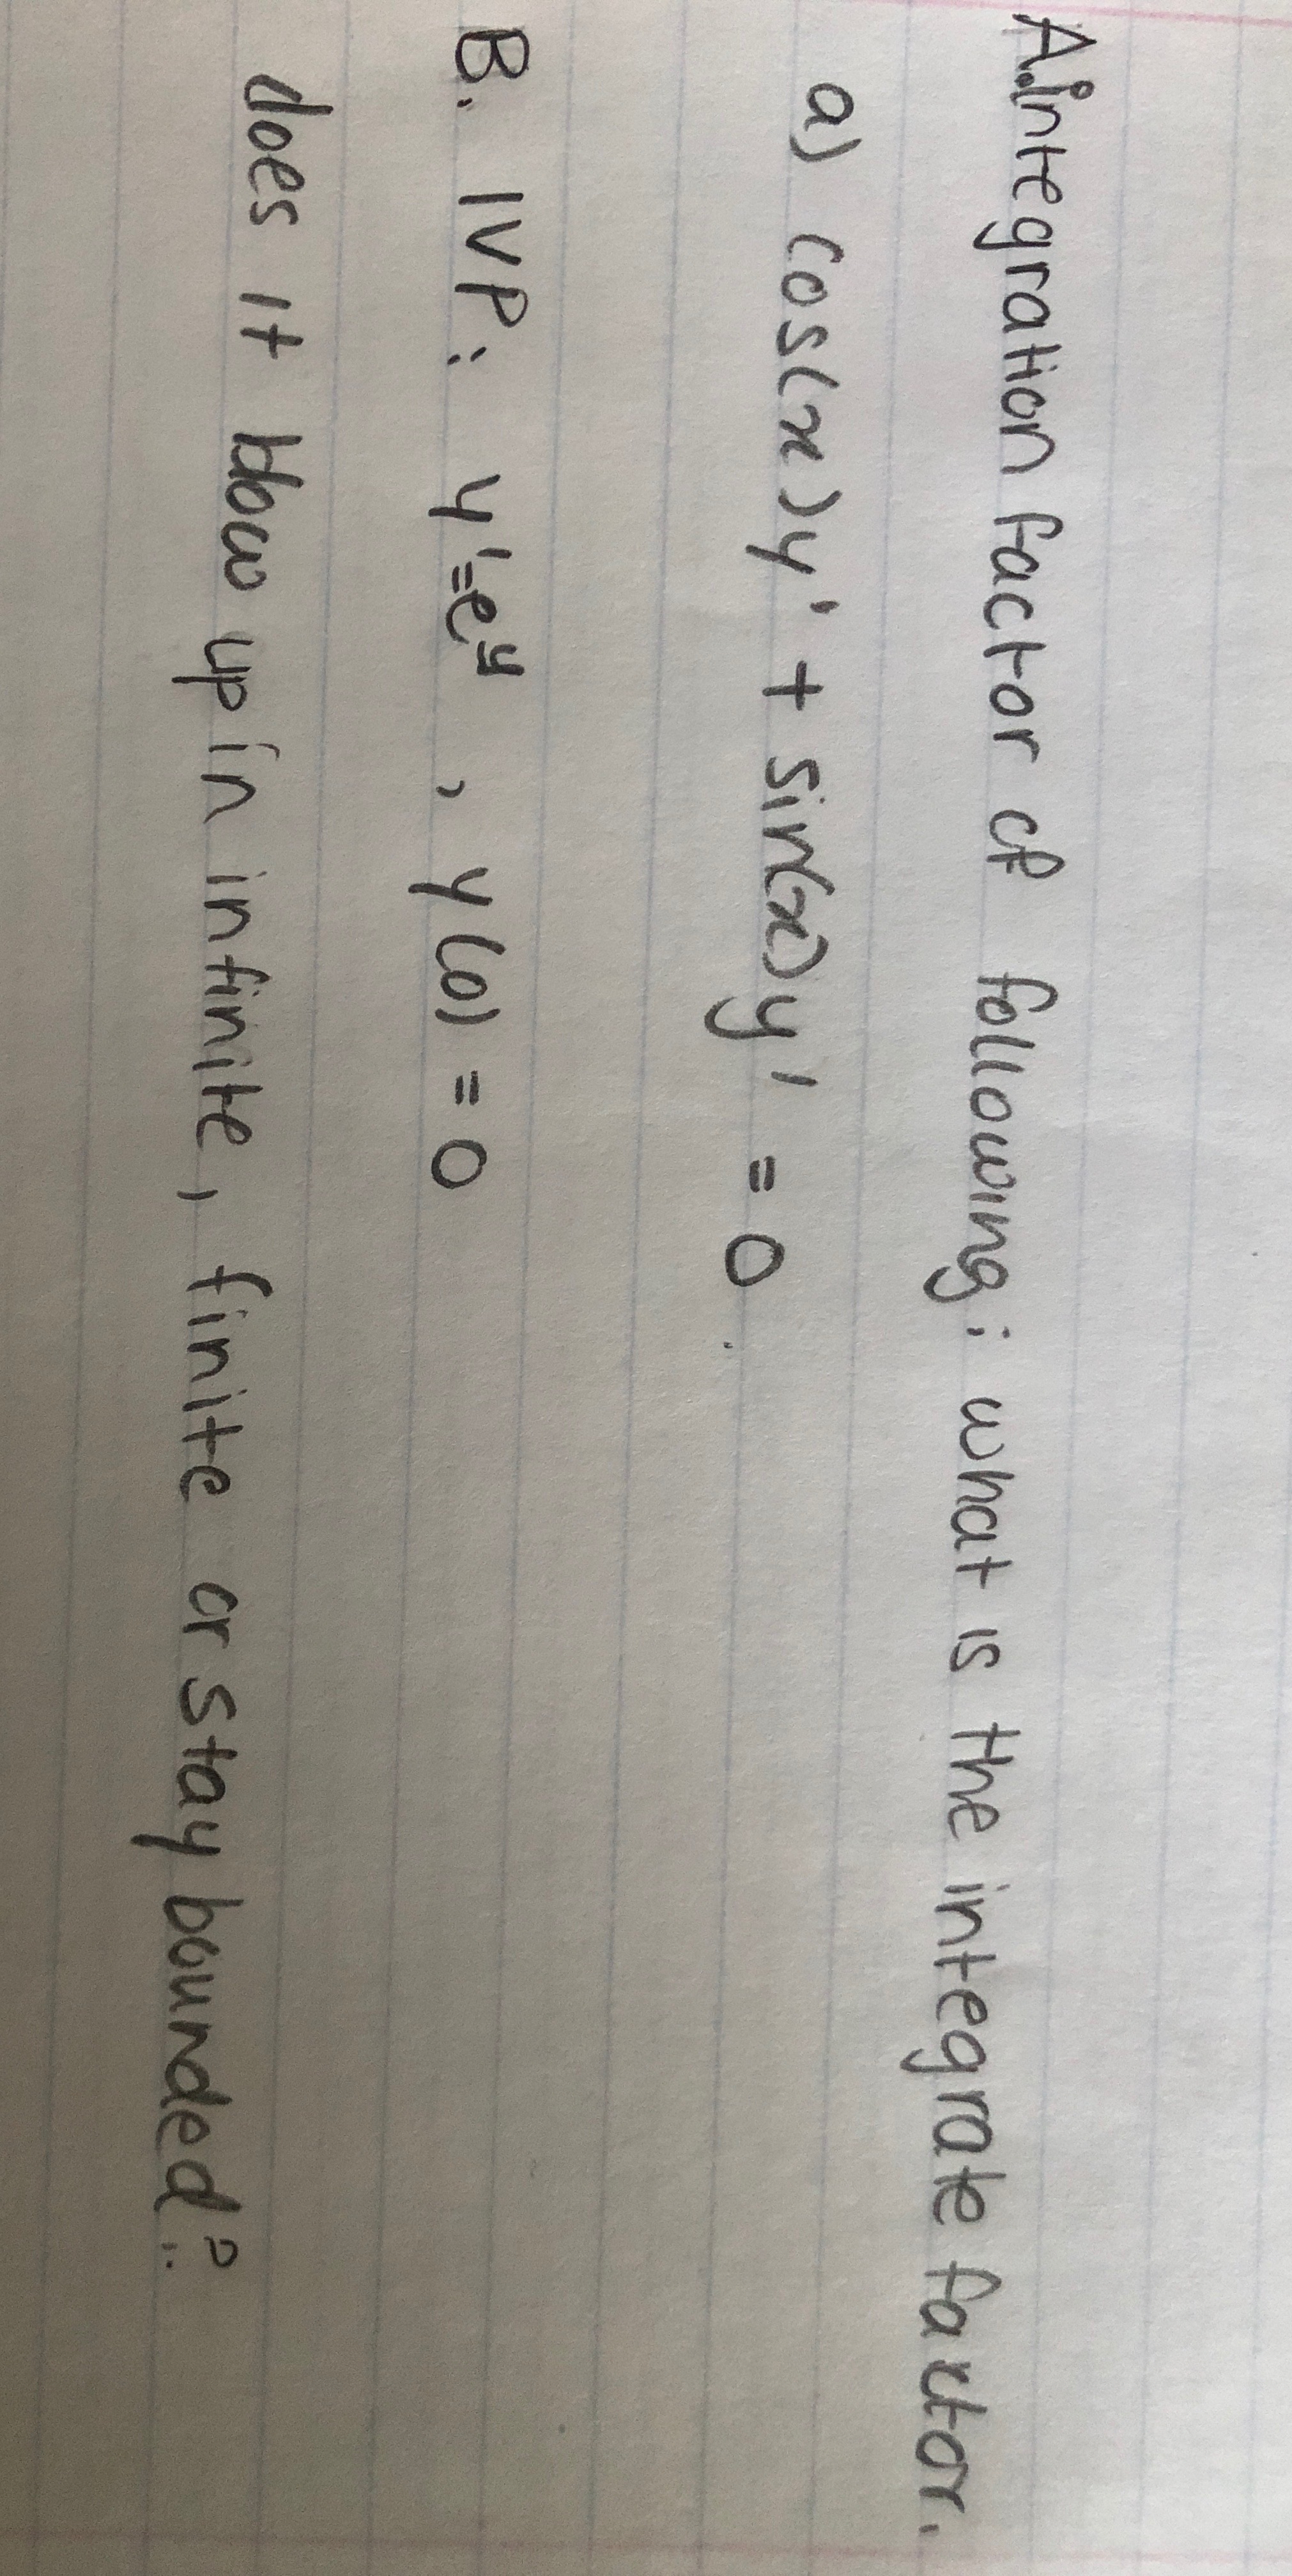 A. integration factor of following: what is the integrate factor.
a) cos(x)y' + sin(x)y' = 0
B. IVP: y'=e^y , y(0) = 0
does it blow up in infinite, finite or stay bounded?